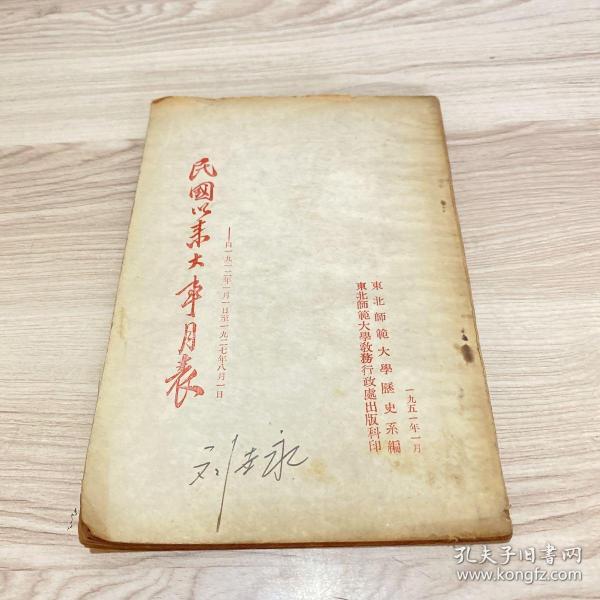 民國以来大事月表
——自一九一二年一月一日至一九二七年八月一日
一九五一年一月
東北師範大學歷史系編
東北師範大學教務行政處出版科印
孔夫子旧书网
www.kongfz.com